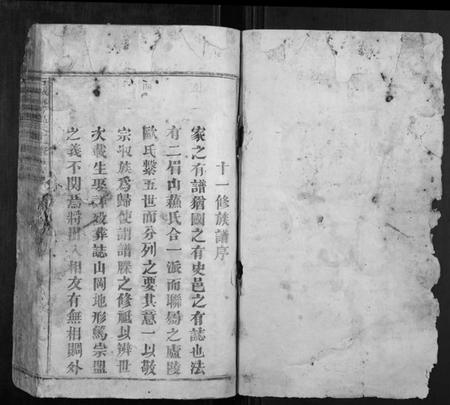 十一修族譜序
家之有譜猶國之有史邑之有誌也法
有二眉山蘇氏合一派而聯屬之廬陵
歐氏繫五世而分列之要其意一以敬
宗收族為歸使謂譜牒之修祗以辨世
次載生娶卒葬誌山岡地形篤崇盟
之義不関為將出入相友有無相賙外